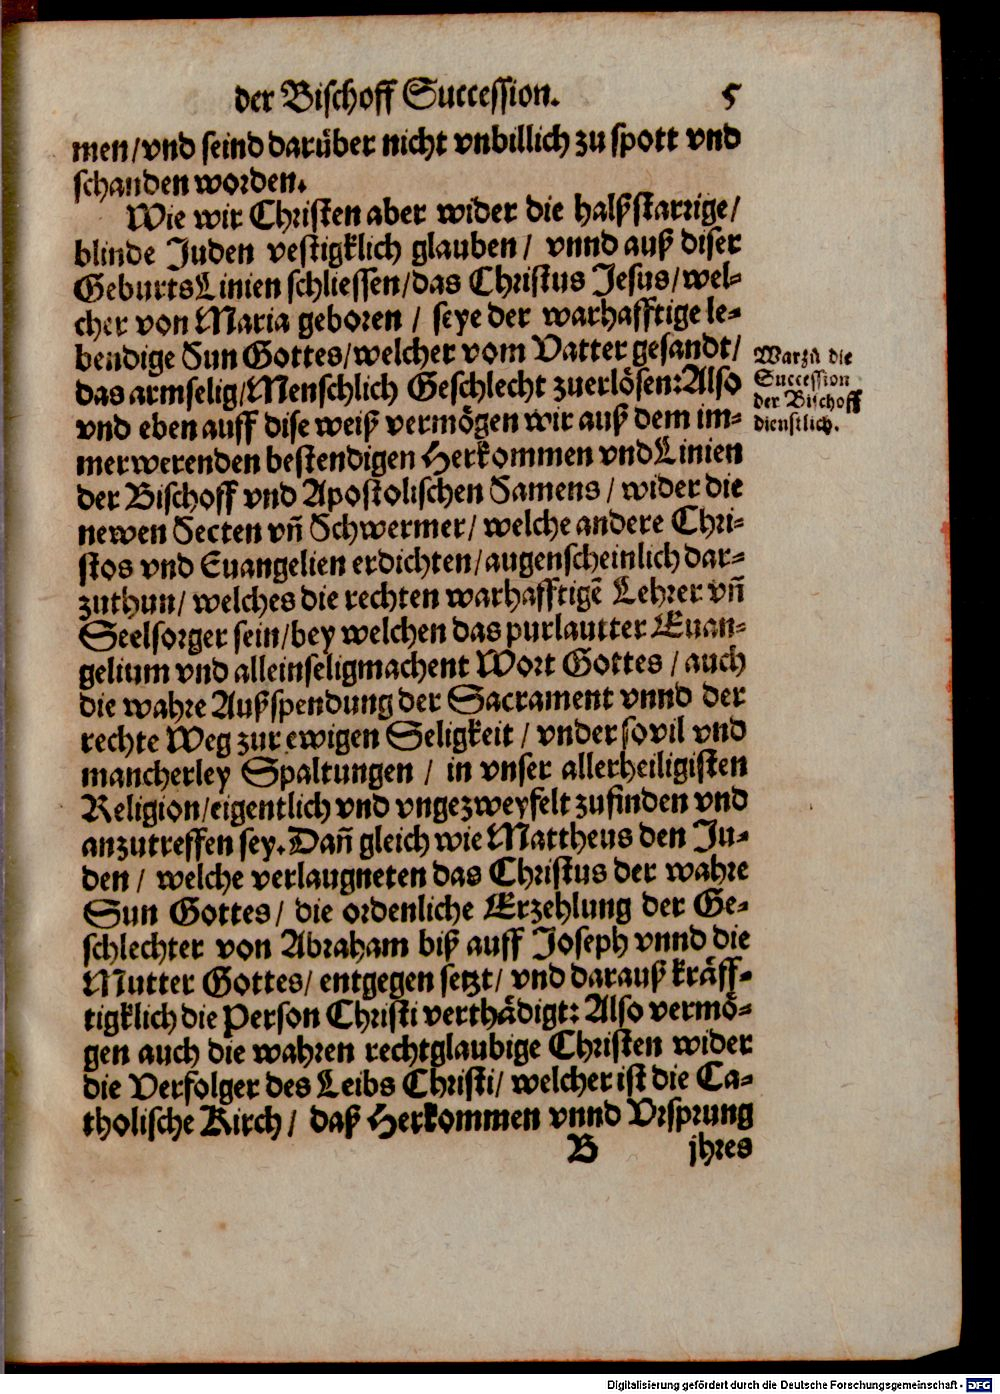 der Bischoff Succession. 5
men/vnd seind darüber nicht vnbillich zu spott vnd
schanden worden.
Wie wir Christen aber wider die halßstarrige/
blinde Juden vestigklich glauben/ vnnd auß diser
GeburtsLinien schliessen/das Christus Jesus/wel-
cher von Maria geboren / seye der warhafftige le-
bendige Sun Gottes/welcher vom Vatter gesandt/
das armselig/Menschlich Geschlecht zuerlösen: Also
vnd eben auff dise weiß vermögen wir auß dem im-
merwerenden bestendigen Herkommen vnd Linien
der Bischoff vnd Apostolischen Samens / wider die
newen Secten vñ Schwermer/ welche andere Chri-
stos vnd Euangelien erdichten/augenscheinlich dar-
zuthun/ welches die rechten warhafftigẽ Lehrer vñ
Seelsorger sein/bey welchen das purlautter Euan-
gelium vnd alleinseligmachent Wort Gottes / auch
die wahre Außspendung der Sacrament vnnd der
rechte Weg zur ewigen Seligkeit / vnder sovil vnd
mancherley Spaltungen / in vnser allerheiligisten
Religion/eigentlich vnd vngezweyfelt zufinden vnd
anzutreffen sey. Dañ gleich wie Mattheus den Ju-
den / welche verlaugneten das Christus der wahre
Sun Gottes/ die ordenliche Erzehlung der Ge-
schlechter von Abraham biß auff Joseph vnnd die
Mutter Gottes/ entgegen setzt/ vnd darauß kräff-
tigklich die Person Christi verthädigt: Also vermö-
gen auch die wahren rechtglaubige Christen wider
die Verfolger des Leibs Christi/ welcher ist die Ca-
tholische Kirch/ daß Herkommen vnnd Vrsprung
B jhres
Warzů die
Succession
der Bischoff
dienstlich.
Digitalisierung gefördert durch die Deutsche Forschungsgemeinschaft - DFG